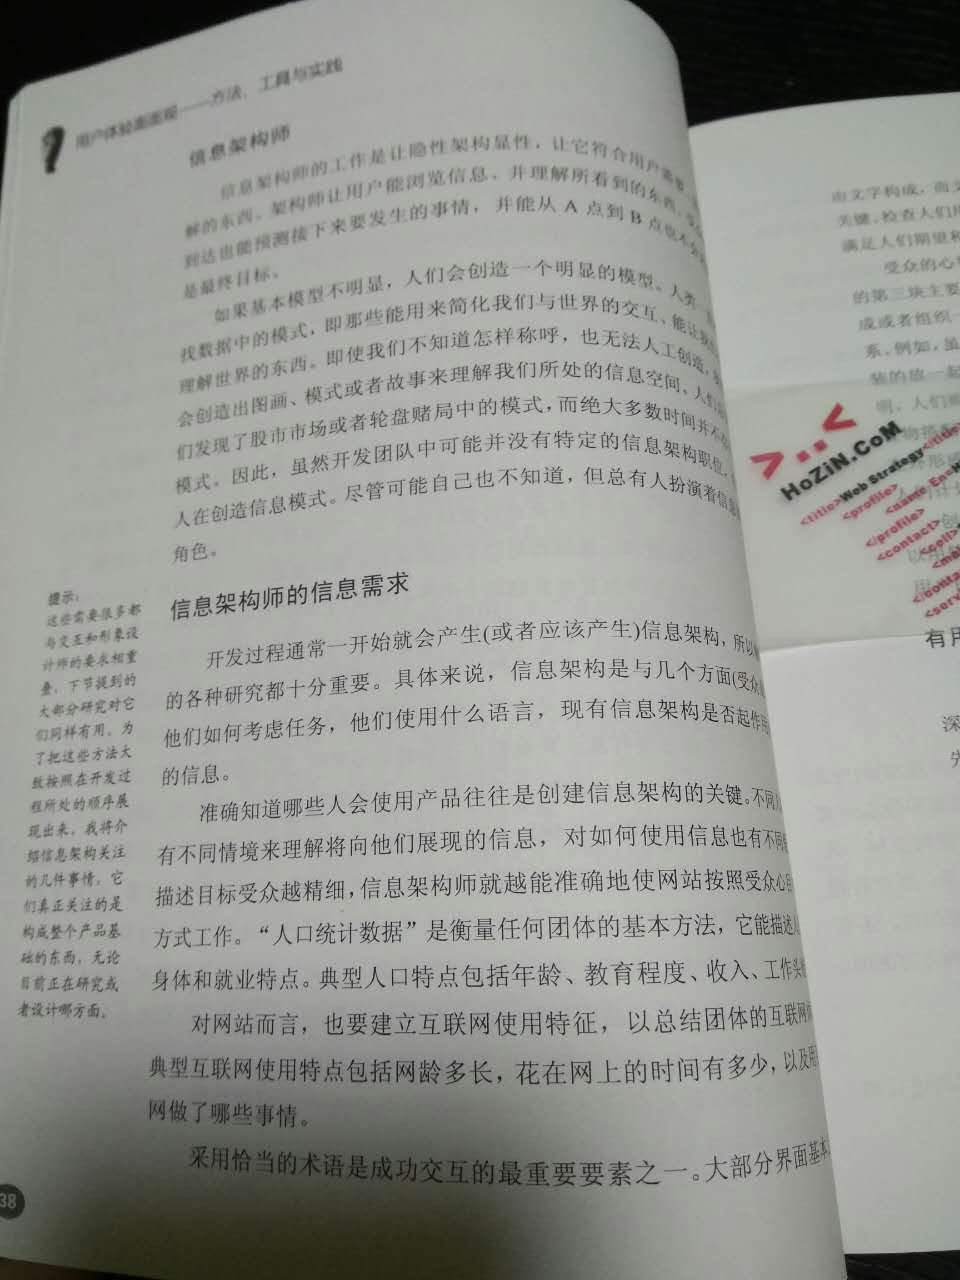 用户体验面面观——方法、工具与实践
信息架构师
信息架构师的工作是让隐性架构显性，让它符合用户需要
解的东西。架构师让用户能浏览信息、并理解所看到的东西。
到达也能预测接下来要发生的事情，并能从 A 点到 B 点也不
是最终目标。
如果基本模型不明显，人们会创造一个明显的模型。人类
找数据中的模式，即那些能用来简化我们与世界的交互、能让我
理解世界的东西。即使我们不知道怎样称呼，也无法人工创造，
会创造出图画、模式或者故事来理解我们所处的信息空间。人们
们发现了股市市场或者轮盘赌局中的模式，而绝大多数时间并不
模式。因此，虽然开发团队中可能并没有特定的信息架构职位，
人在创造信息模式。尽管可能自己也不知道，但总有人扮演着信息
角色。
信息架构师的信息需求
开发过程通常一开始就会产生(或者应该产生)信息架构，所以
的各种研究都十分重要。具体来说，信息架构是与几个方面(受众
他们如何考虑任务，他们使用什么语言，现有信息架构是否起作用
的信息。
准确知道哪些人会使用产品往往是创建信息架构的关键。不同
有不同情境来理解将向他们展现的信息，对如何使用信息也有不同
描述目标受众越精细，信息架构师就越能准确地使网站按照受众心
方式工作。“人口统计数据”是衡量任何团体的基本方法，它能描述
身体和就业特点。典型人口特点包括年龄、教育程度、收入、工作头
对网站而言，也要建立互联网使用特征，以总结团体的互联网
典型互联网使用特点包括网龄多长，花在网上的时间有多少，以及用
网做了哪些事情。
采用恰当的术语是成功交互的最重要要素之一。大部分界面基本
提示：
这些需要很多都
与交互和形象设
计师的要求相重
叠，下节提到的
大部分研究对它
们同样有用。为
了把这些方法大
致按照在开发过
程所处的顺序展
现出来，我将介
绍信息架构关注
的几件事情，它
们真正关注的是
构成整个产品基
础的东西，无论
目前正在研究或
者设计哪方面。
38
由文字构成，而文
关键，检查人们用
满足人们期望和
受众的心
的第三块主要
成或者组织一
系，例如，虽
装的放一起
明，人们
有用
深
>..<
HoZiN.CoM
<title>Web Strategy</title>
<profile>
<name En=H
</profile>
<contact>
<cell>
<mai
</contac
<serv